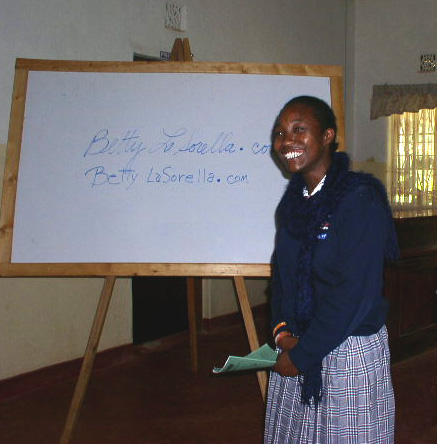 Betty LaSorella.co
Betty LaSorella.com